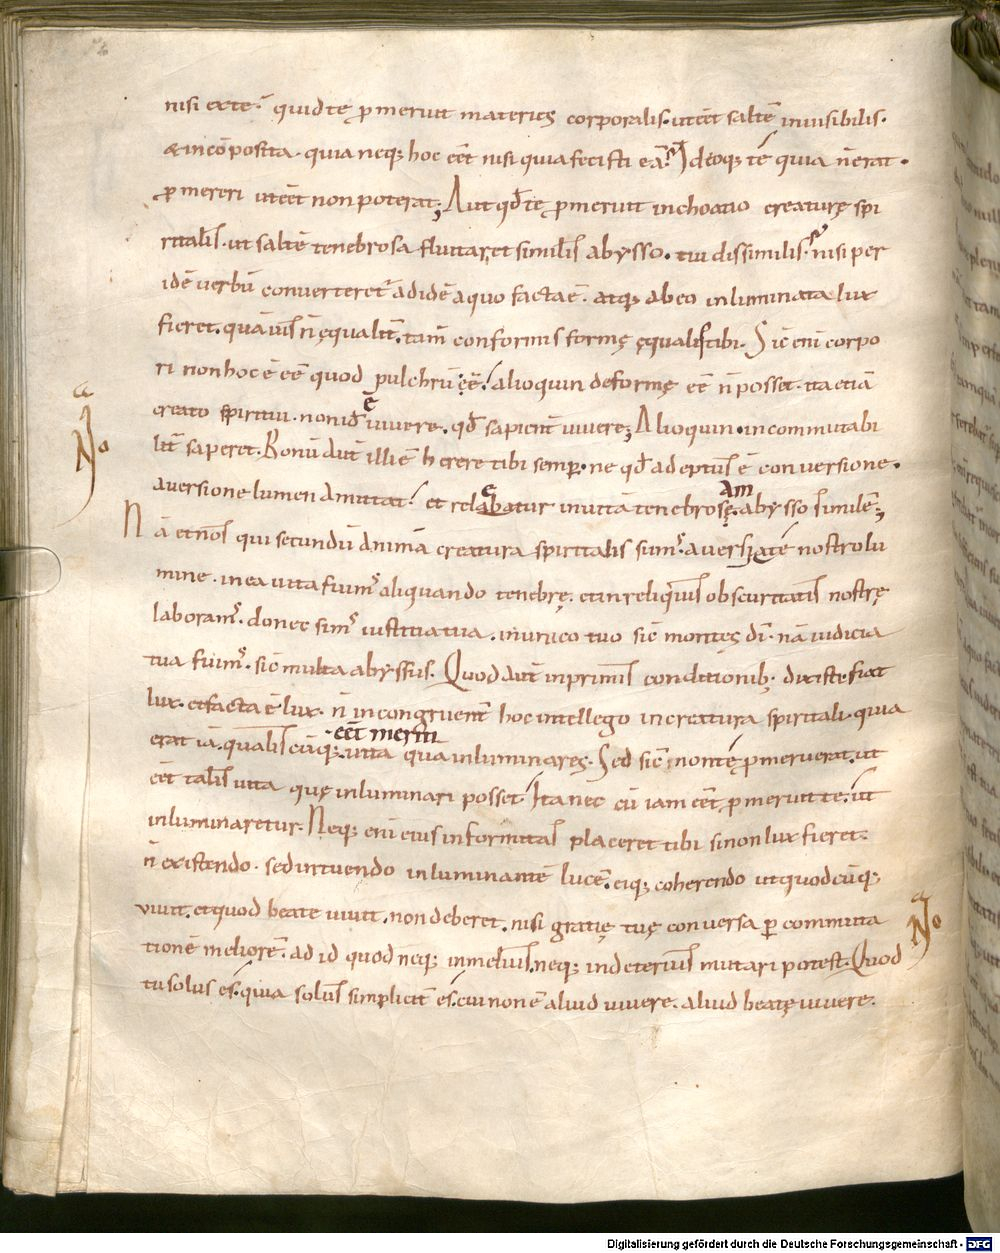 nisi ex te. quid te ꝑmeruit materies corporalis. ut eēt saltē inuisibilis.
& incōposita. quia neq; hoc eēt nisi quia fecisti eā. Ideoq; te quia ñ erat.
ꝑmereri ut eēt non poterat; Aut qđ te ꝑmeruit inchoatio creaturę spi
ritalis. ut saltē tenebrosa fluitaret similis abysso. tui dissimilis. nisi per
idē uerbū conuerteret᷑ ad idē a quo facta ē. atq; ab eo inluminata lux
fieret. quāuis ñ ęqualit̄. tam̄ conformis formę ęquali tibi. Sic eni corpo
ri non hoc ē eē quod pulchrū eē. alioquin deformę eē ñ posset. ita etiā
creato spiritui. non id ē uiuere. qđ sapient̄ uiuere; Alioquin incommutabi
lit̄ saperet. Bonū aut̄ illi ē herere tibi semp. ne qđ adeptus ē conuersione.
auersione lumen amittat. et relabatur in uitā tenebrosę am abysso similē;
Nā et nos qui secundū animā creatura spiritalis sum᷒. auersi a te nostro lu
mine. in ea uita fuim᷒ aliquando tenebrę. et in reliquiis obscuritatis nostrę
laboram᷒. donec sim᷒ iustitia tua. in unico tuo sic montes dī. nā iudicia
tua fuim᷒. sic multa abyssus. Quod aut̄ in primis conditionib; dixisti fiat
lux. et facta ē lux. ñ incongruent̄ hoc intellego in creatura spiritali. quia
eēt merm
erat iā. qualiscūq; uita qua inluminares. Sed sic non te ꝑmeruerat. ut
eēt talis uita quę inluminari posset. Ita nec cū iam eēt ꝑmeruit te. ut
inluminaretur. Neq; eni eius informitas placeret tibi si non lux fieret.
ñ existendo. sed intuendo inluminantē lucē. eiq; coherendo ut quodcūq;
uiuit. et quod beate uiuit. non deberet. nisi gratię tuę conuersa ꝑ commuta
tionē meliorē. ad id quod neq; in melius. neq; in deterius mutari potest. Quod
tu solus es. quia solus simplicit̄ es. cui non ē aliud uiuere. aliud beatę uiuere.
Digitalisierung gefördert durch die Deutsche Forschungsgemeinschaft - DFG